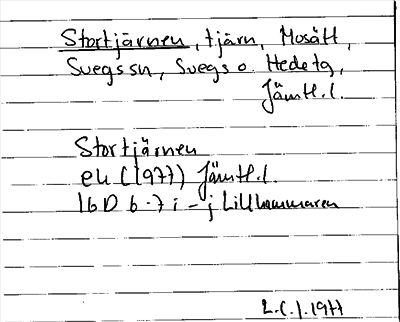 Stortjärnen, tjärn, Mosätt,
Svegs sn, Svegs o. Hede tg,
Jämtl. l.
Stortjärnen
ek (1977) Jämtl. l.
16D 6-7 i - j Lillhammaren
L.C.J. 1977